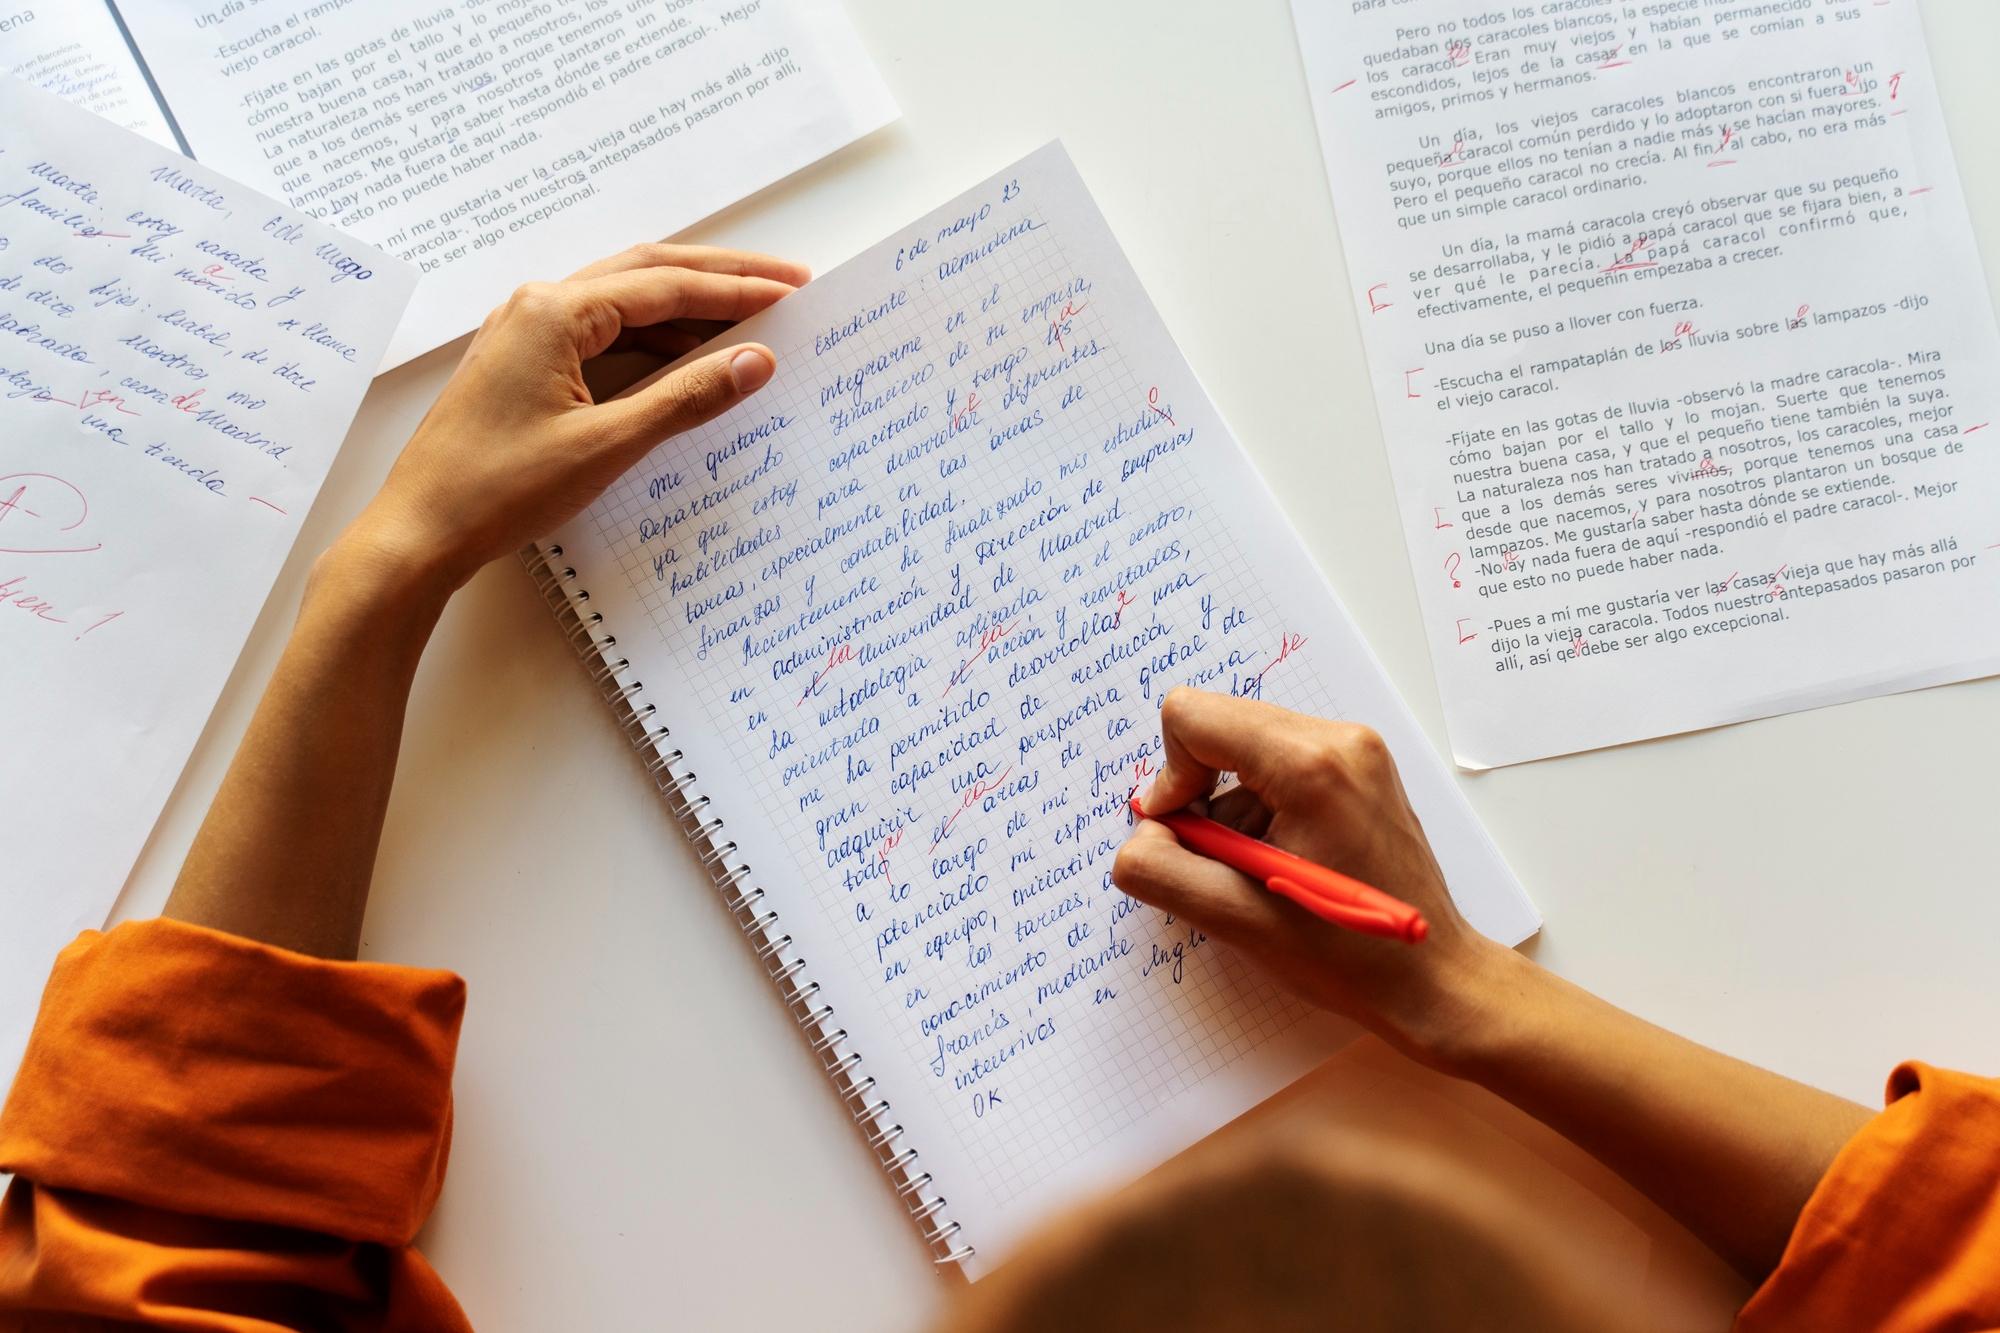 6 de mayo 23
Estudiante: almudena
Me gustaria integrarme en el
Departamento Financiero de su empresa,
ya que estoy capacitado y tengo los a
habilidades para desarrolar
tareas, especialmente en las áreas de
finanzas y contabilidad.
Recientemente he finalizado mis estudius o
en administración y Dirección de Empresas
en el la Universidad de Madrid.
La metodología aplicada en el centro,
orientada a el la acción y resultados,
me ha permitido desarrollas r una
gran capacidad de resducción y
adquirir una perspectiva global de
todo as el la areas de la empresa.
a lo largo de mi formac hay he
potenciado mi espiritu u
en equipo, iniciativa y
en las tareas, a
conocimiento de idi
francés, mediante e
intensivos en Ingl
OK
Marta, 6 de mayo
Marta. estoy carada y
familias. Mi merido a se llama
dos hijos: Isabel, de doce
de diez Nosotros, mo
cerca de Madrid.
en una tienda
A-
bien!
ena
en Barcelona.
informático y
(Levan-
desayuno
de casa
(Ir) a su
Un día se
-Escucha el rampa
viejo caracol.
-Fíjate en las gotas de lluvia -ob
cómo bajan por el tallo y lo moja
nuestra buena casa, y que el pequeño tie
La naturaleza nos han tratado a nosotros, los
que a los demás seres vivos, porque tenemos una
que nacemos, y para nosotros plantaron un bos
lampazos. Me gustaría saber hasta dónde se extiende.
-No hay nada fuera de aquí -respondió el padre caracol-. Mejor
esto no puede haber nada.
a mí me gustaría ver la casa vieja que hay más allá -dijo
caracola-. Todos nuestros antepasados pasaron por allí,
be ser algo excepcional.
para co
Pero no todos los caracoles
quedaban dos caracoles blancos, la especie más
los caracol. es Eran muy viejos y habían permanecido
escondidos, lejos de la casas en la que se comían a sus
amigos, primos y hermanos.
Un día, los viejos caracoles blancos encontraron un
pequeña o caracol común perdido y lo adoptaron con si fuera ijo ?
suyo, porque ellos no tenían a nadie más y se hacían mayores.
Pero el pequeño caracol no crecía. Al fin i y al cabo, no era más
que un simple caracol ordinario.
Un día, la mamá caracola creyó observar que su pequeño
se desarrollaba, y le pidió a papá caracol que se fijara bien, a
ver qué le parecía. La papá caracol confirmó que,
efectivamente, el pequeñín empezaba a crecer.
Una día se puso a llover con fuerza.
-Escucha el rampataplán de los la lluvia sobre las o lampazos -dijo
el viejo caracol.
-Fíjate en las gotas de lluvia -observó la madre caracola-. Mira
cómo bajan por el tallo y lo mojan. Suerte que tenemos
nuestra buena casa, y que el pequeño tiene también la suya.
La naturaleza nos han tratado a nosotros, los caracoles, mejor
que a los demás seres vivimos, porque tenemos una casa
desde que nacemos, y para nosotros plantaron un bosque de
lampazos. Me gustaría saber hasta dónde se extiende.
? -No ay nada fuera de aquí -respondió el padre caracol-. Mejor
que esto no puede haber nada.
-Pues a mí me gustaría ver las casas vieja que hay más allá
dijo la vieja caracola. Todos nuestro s antepasados pasaron por
allí, así qe u debe ser algo excepcional.